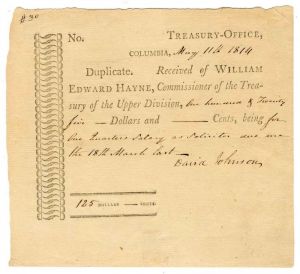 # 30
No. TREASURY-OFFICE,
COLUMBIA, May 11th 1814
Duplicate. Received of WILLIAM
EDWARD HAYNE, Commissioner of the Trea-
sury of the Upper Division, One hundred & Twenty
five — Dollars and — Cents, being for
One Quarters Salary as Solicitor due me
the 18th March Last —
David Johnson
125 DOLLARS — CENTS.